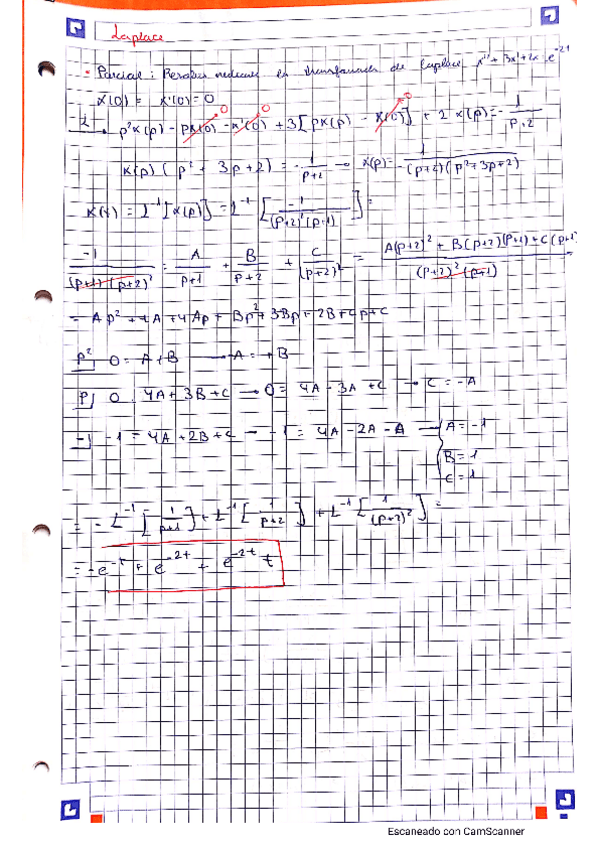 Laplace
• Parcial: Resolver mediante la transformada de Laplace x'' + 3x' + 2x = -e^-2t
x(0) = x'(0) = 0
L → p²x(p) - px(0) - x'(0) + 3[px(p) - x(0)] + 2x(p) = -1/(p+2)
0 0 0
x(p)(p² + 3p + 2) = -1/(p+2) → x(p) = -1/((p+2)(p²+3p+2))
x(t) = L^-1[x(p)] = L^-1[-1/((p+2)²(p+1))] =
-1/((p+1)(p+2)²) = A/(p+1) + B/(p+2) + C/(p+2)² = (A(p+2)² + B(p+2)(p+1) + C(p+1))/((p+2)²(p+1)) =
= Ap² + 4A + 4Ap + Bp² + 3Bp + 2B + Cp + C
p²] 0 = A + B → -A = +B
p] 0 = 4A + 3B + C → 0 = 4A - 3A + C → C = -A
-1] -1 = 4A + 2B + C → -1 = 4A - 2A - A → { A = -1
B = 1
C = 1
= -L^-1[1/(p+1)] + L^-1[1/(p+2)] + L^-1[1/(p+2)²] =
= -e^-t + e^-2t + e^-2t t
Escaneado con CamScanner